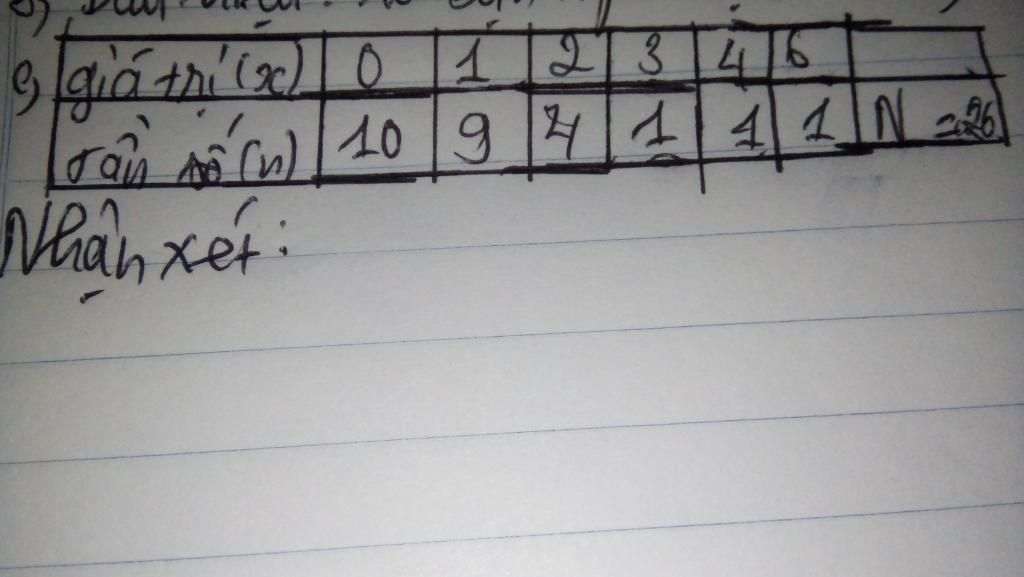 c) giá trị (x) 0 1 2 3 4 6
Tần số (n) 10 9 4 1 1 1 N = 26
Nhận xét: